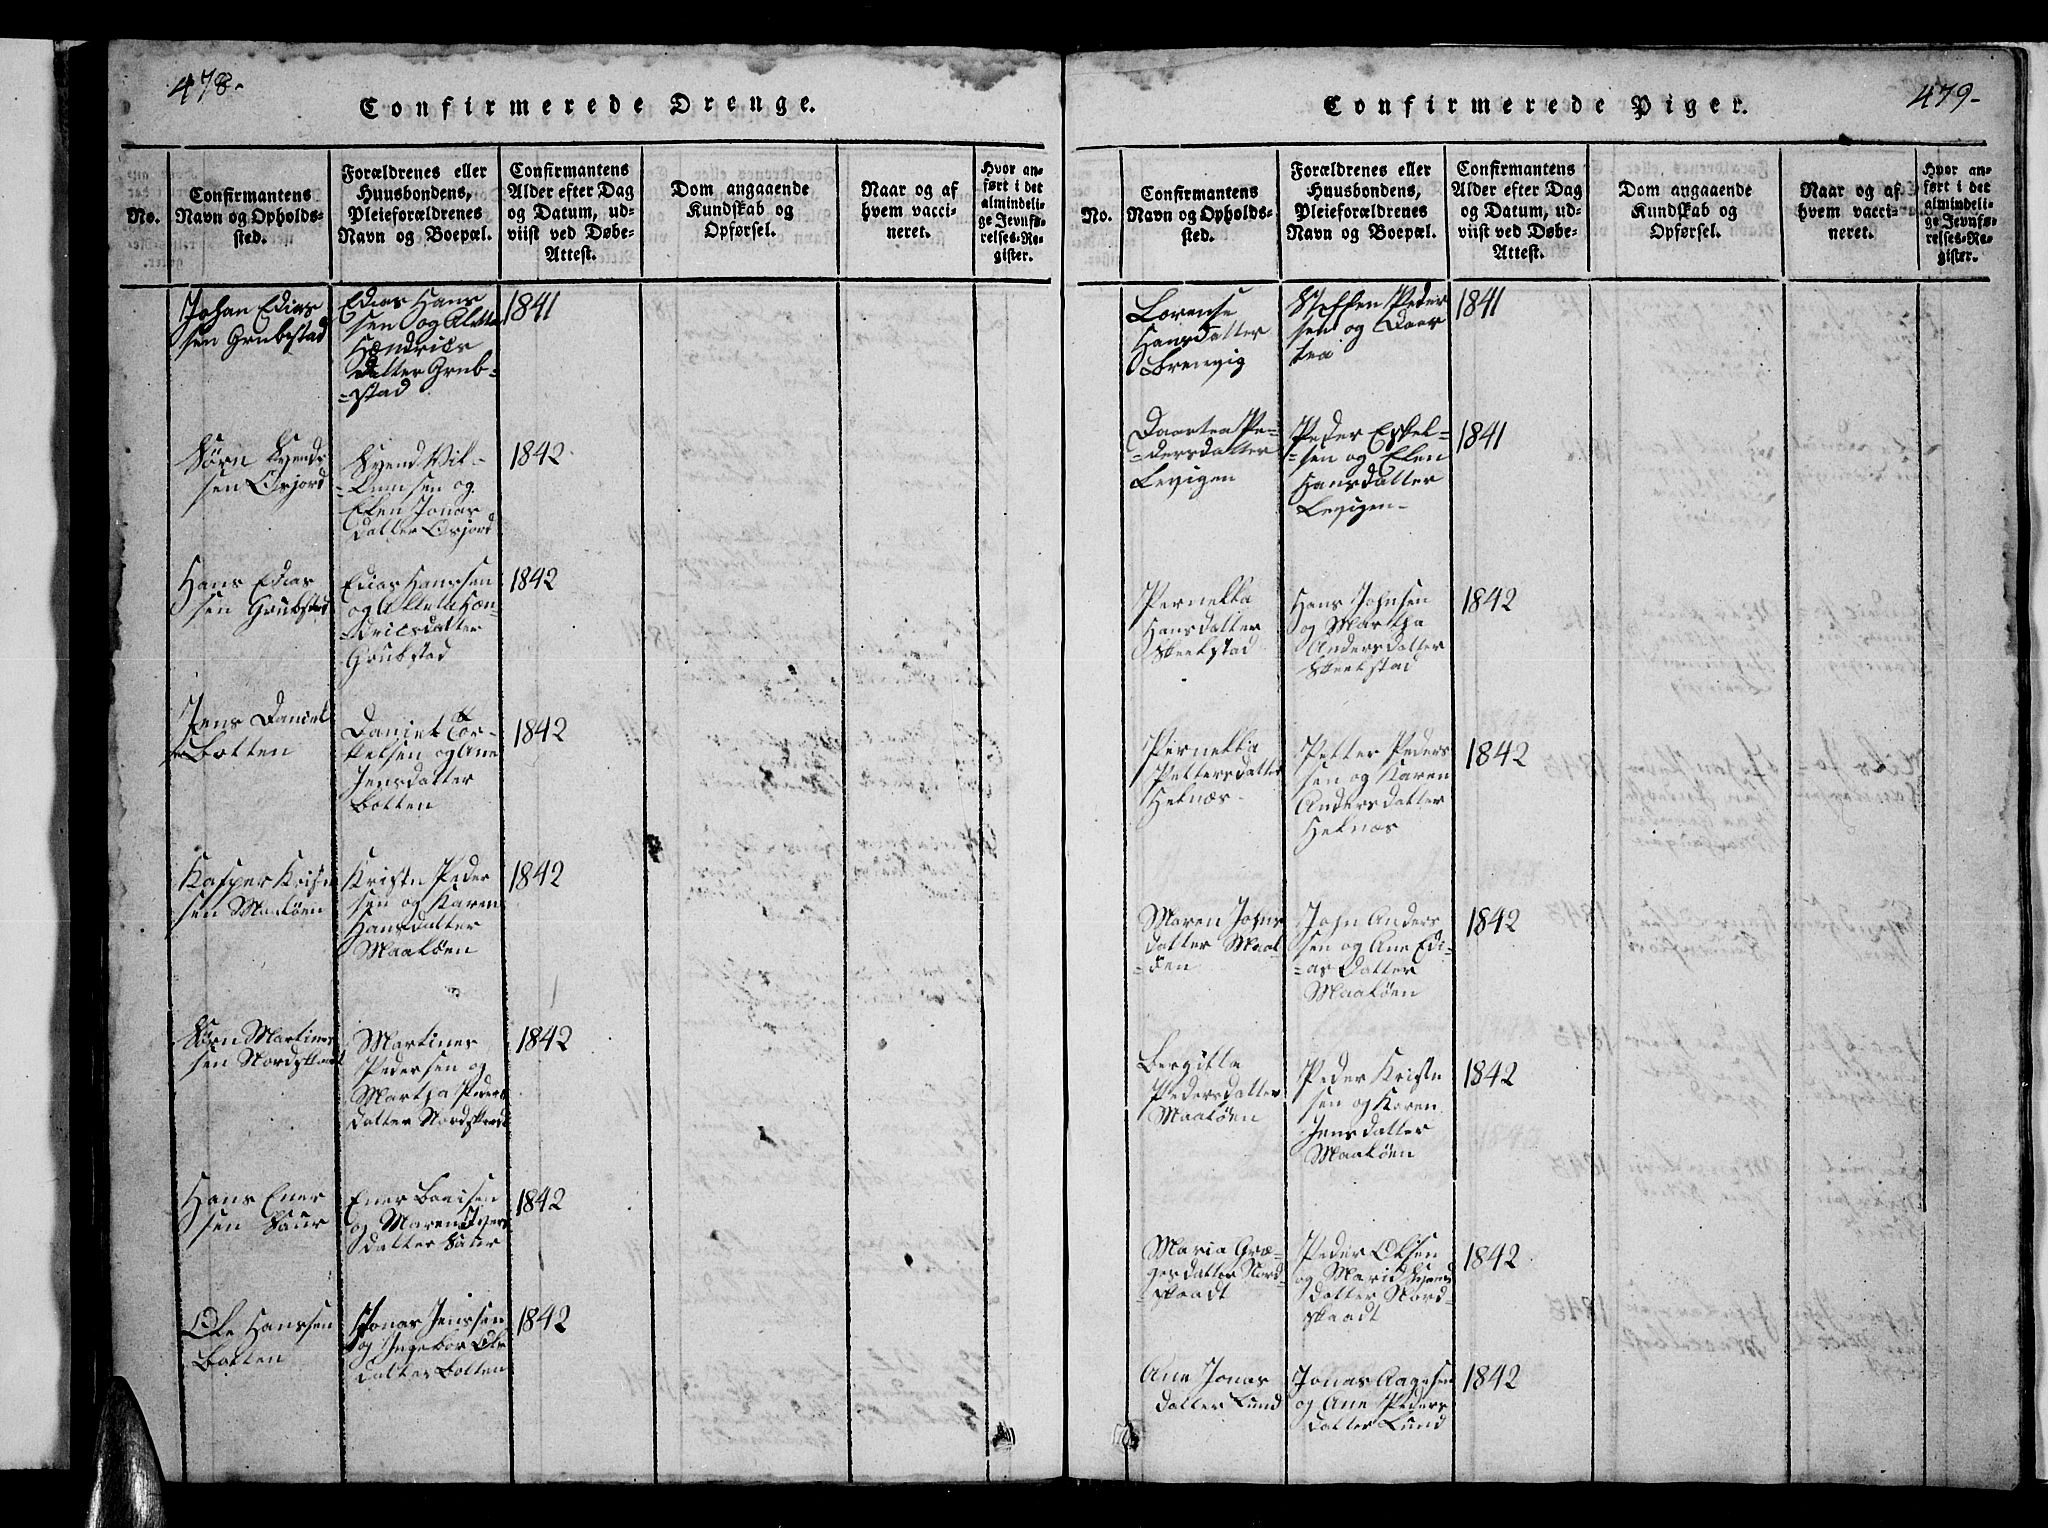 478-
Confirmerede Drenge.
No.
Confirmantens
Navn og Opholds-
sted.
Forældrenes eller
Huusbondens,
Pleieforældrenes
Navn og Boepæl.
Confirmantens
Alder efter Dag
og Datum, ud-
viist ved Døbe-
Attest.
Dom angaaende
Kundskab og
Opførsel.
Naar og af
hvem vacci-
neret.
Hvor an-
ført i det
almindeli-
ge Jevnfø-
relses-Re-
gister.
Johan Edias
sen Grubstad
Edias Hans
sen og Aletta
Hendrics
datter Grub-
-stad
1841
Sørn Svends
sen Osjord
Svend Vil-
-lumsen og
Elen Jonas
datter Osjord
1842
Hans Edias
sen Grubstad
Edias Hanssen
og Alleta Hen-
-dricsdatter
Grubstad
1842
Jens Daniel
Botten
Daniel Tor-
-kelsen og Ane
Jensdatter
Botten
1842
Kasper Kristn
sen Maaløen
Kristn Peder
sen og Karen
Hansdatter
Maaløen
1842
Sørn Martines
sen Nordskaat
Martines
Pedersen og
Martha Peders
datter Nordskaadt
1842
Hans Ener
sen Saur
Ener Boeisen
og Maren Ivers
datter Saur
1842
Ole Hanssen
Botten
Jonas Jenssen
og Ingebor Ols
datter Botten
1842
479-
Confirmerede Piger.
No.
Confirmantens
Navn og Opholds-
sted.
Forældrenes eller
Huusbondens,
Pleieforældrenes
Navn og Boepæl.
Confirmantens
Alder efter Dag
og Datum, ud-
viist ved Døbe-
Attest.
Dom angaaende
Kundskab og
Opførsel.
Naar og af
hvem vacci-
neret.
Hvor an-
ført i det
almindeli-
ge Jevnfø-
relses-Re-
gister.
Lorense
Hansdatter
Brenvig
Steffen Peder
sen og Daor
tea
1841
Daortea Pe-
-dersdatter
Levigen
Peder Eskel-
-sen og Elen
Hansdatter
Levigen-
1841
Pernella
Hansdatter
Steelstad
Hans Johnsen
og Martha
Andersdatter
Steelstad
1842
Pernella
Pettersdatter
Helnæs-
Petter Peders
sen og Karen
Andersdatter
Helnæs
1842
Maren Johns
datter Maal-
-øen
John Anders
sen og Ane Edi-
-as Datter
Maaløen
1842
Bergitta
Pedersdatter
Maaløen
Peder Kristn
sen og Karen
Jensdatter
Maaløen
1842
Maria Græ-
gesdatter Nord-
-skaadt
Peder Olsen
og Marid Svends
datter Nord-
skaadt
1842
Ane Jonas
datter Lund
Jonas Aagesen
og Ane Peders
datter Lund
1842